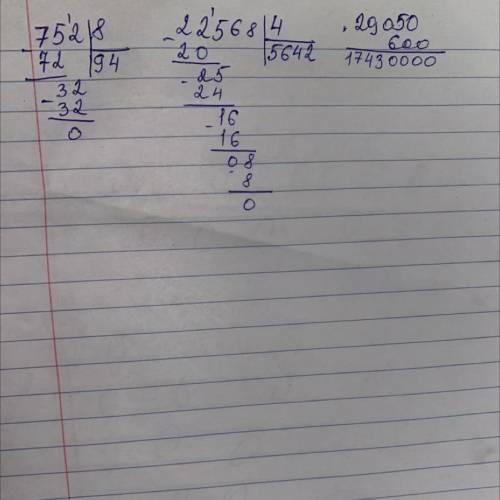 752 8
72 94
- 32
32
0
- 22568 4
20 5642
- 25
24
- 16
16
08
- 8
0
. 29050
600
17430000